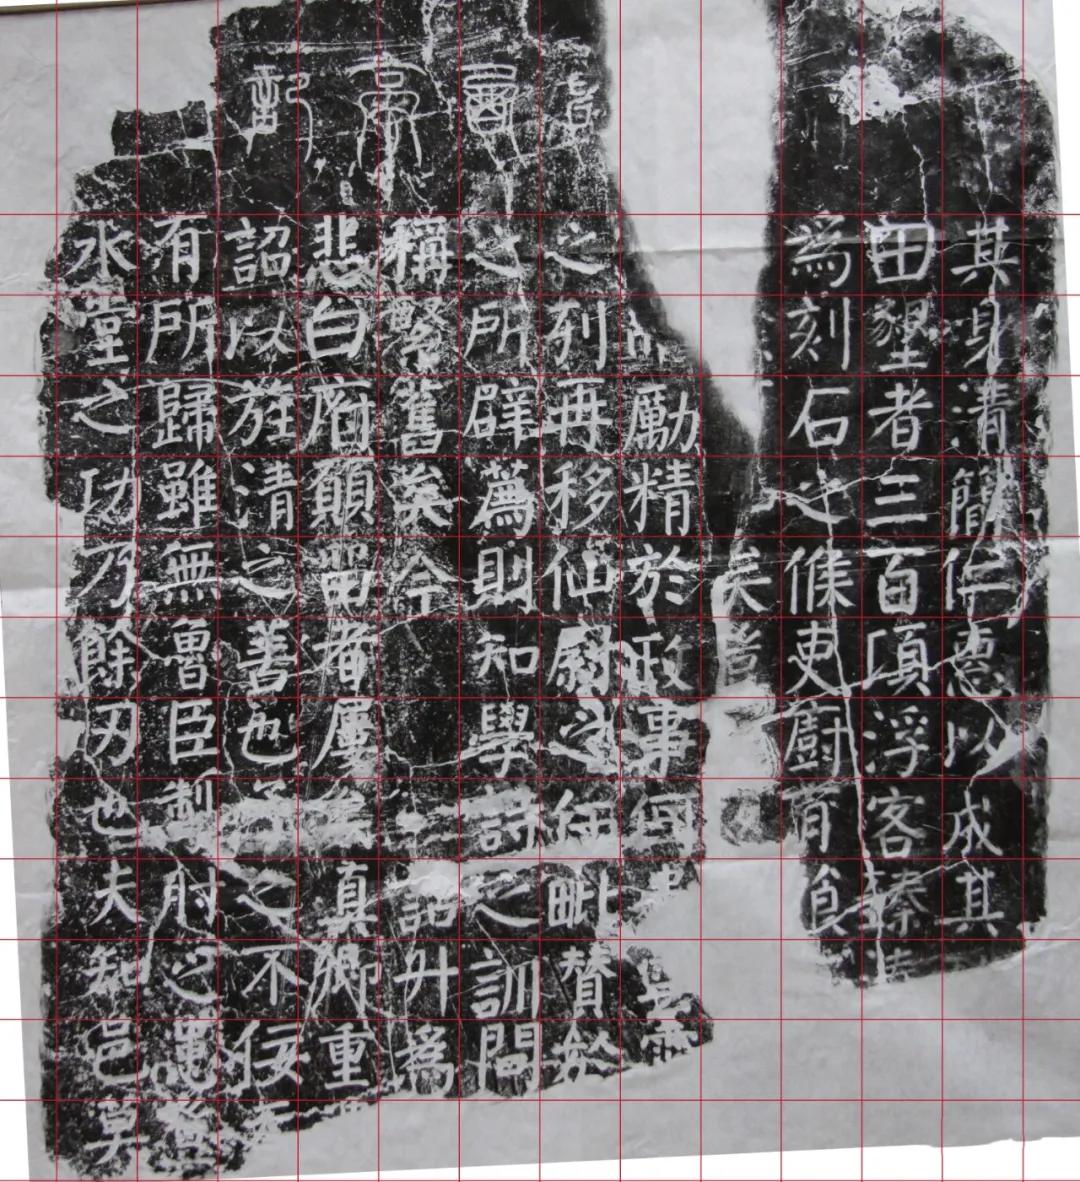 其身清簡仁惠以成其
田墾者三百頃浮客臻
為刻石之候吏廚有食
矣
勵精於政事
之列再移仙尉之任毗贊於
之所辟薦則知學詩之訓聞
稱緊舊矣今詔升為
悲白府願留者屢矣真卿重
詔以旌清之善也之不佞
有所歸雖無魯臣制肘之
水堂之功乃餘刃也夫知邑莫